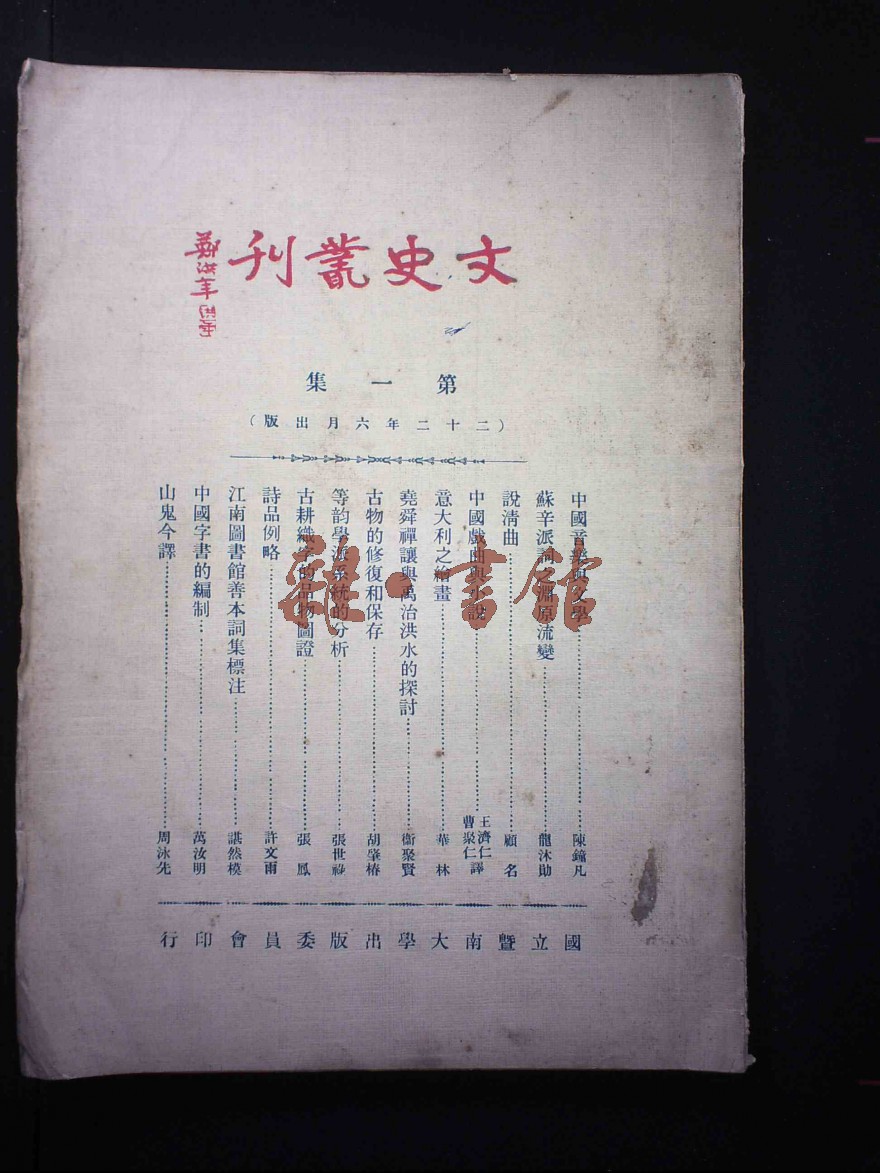 文史叢刊
鄭洪年題
第一集
(二十二年六月出版)
中國音樂與文學 陳鐘凡
蘇辛派詞之淵源流變 龍沐勛
說清曲 顧名
中國戲曲與小說 王濟仁 曹聚仁譯
意大利之繪畫 華林
堯舜禪讓與禹治洪水的探討 衛聚賢
古物的修復和保存 胡肇椿
等韵學派系統的分析 張世祿
古耕織字的品物圖證 張鳳
詩品例略 許文雨
江南圖書館善本詞集標注 諶然模
中國字書的編制 萬汝明
山鬼今譯 周泳先
國立暨南大學出版委員會印行
雜·書館